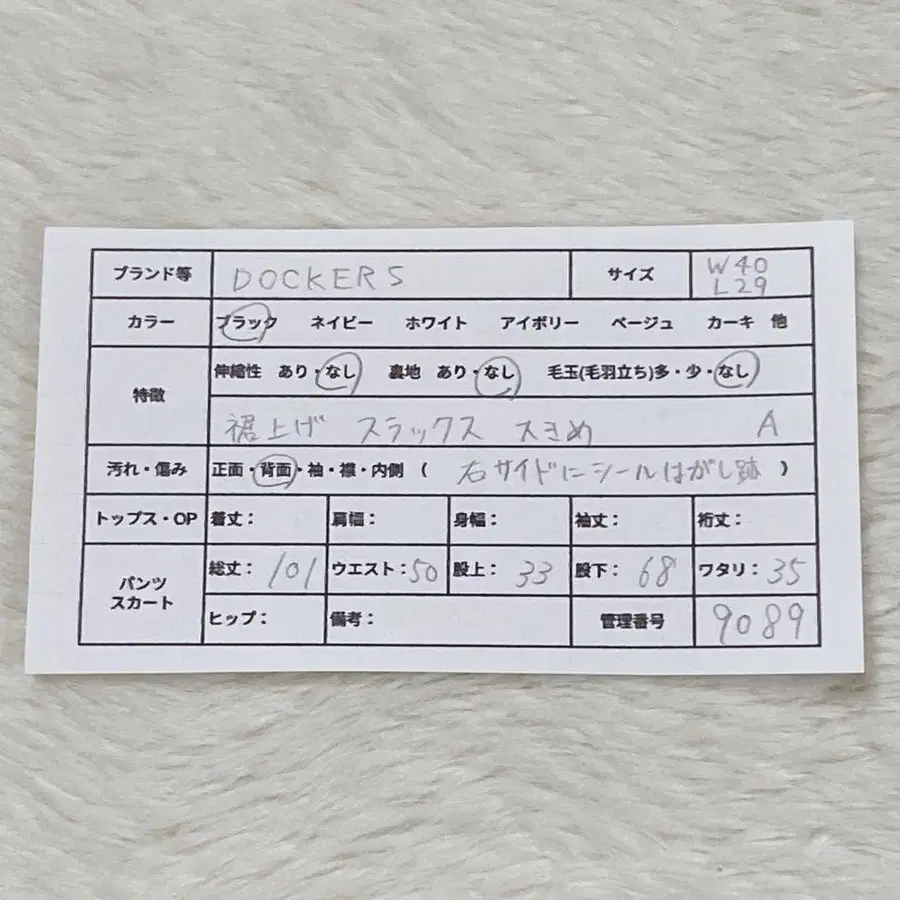 ブランド等 DOCKERS サイズ W40
L29
カラー ブラック ネイビー ホワイト アイボリー ベージュ カーキ 他
特徴 伸縮性 あり・なし 裏地 あり・なし 毛玉(毛羽立ち)多・少・なし
裾上げ スラックス 大きめ A
汚れ・傷み 正面・背面・袖・襟・内側 ( 右サイドにシールはがし跡 )
トップス・OP 着丈: 肩幅: 身幅: 袖丈: 裄丈:
パンツ
スカート
総丈: 101 ウエスト:50 股上: 33 股下: 68 ワタリ: 35
ヒップ: 備考: 管理番号 9089